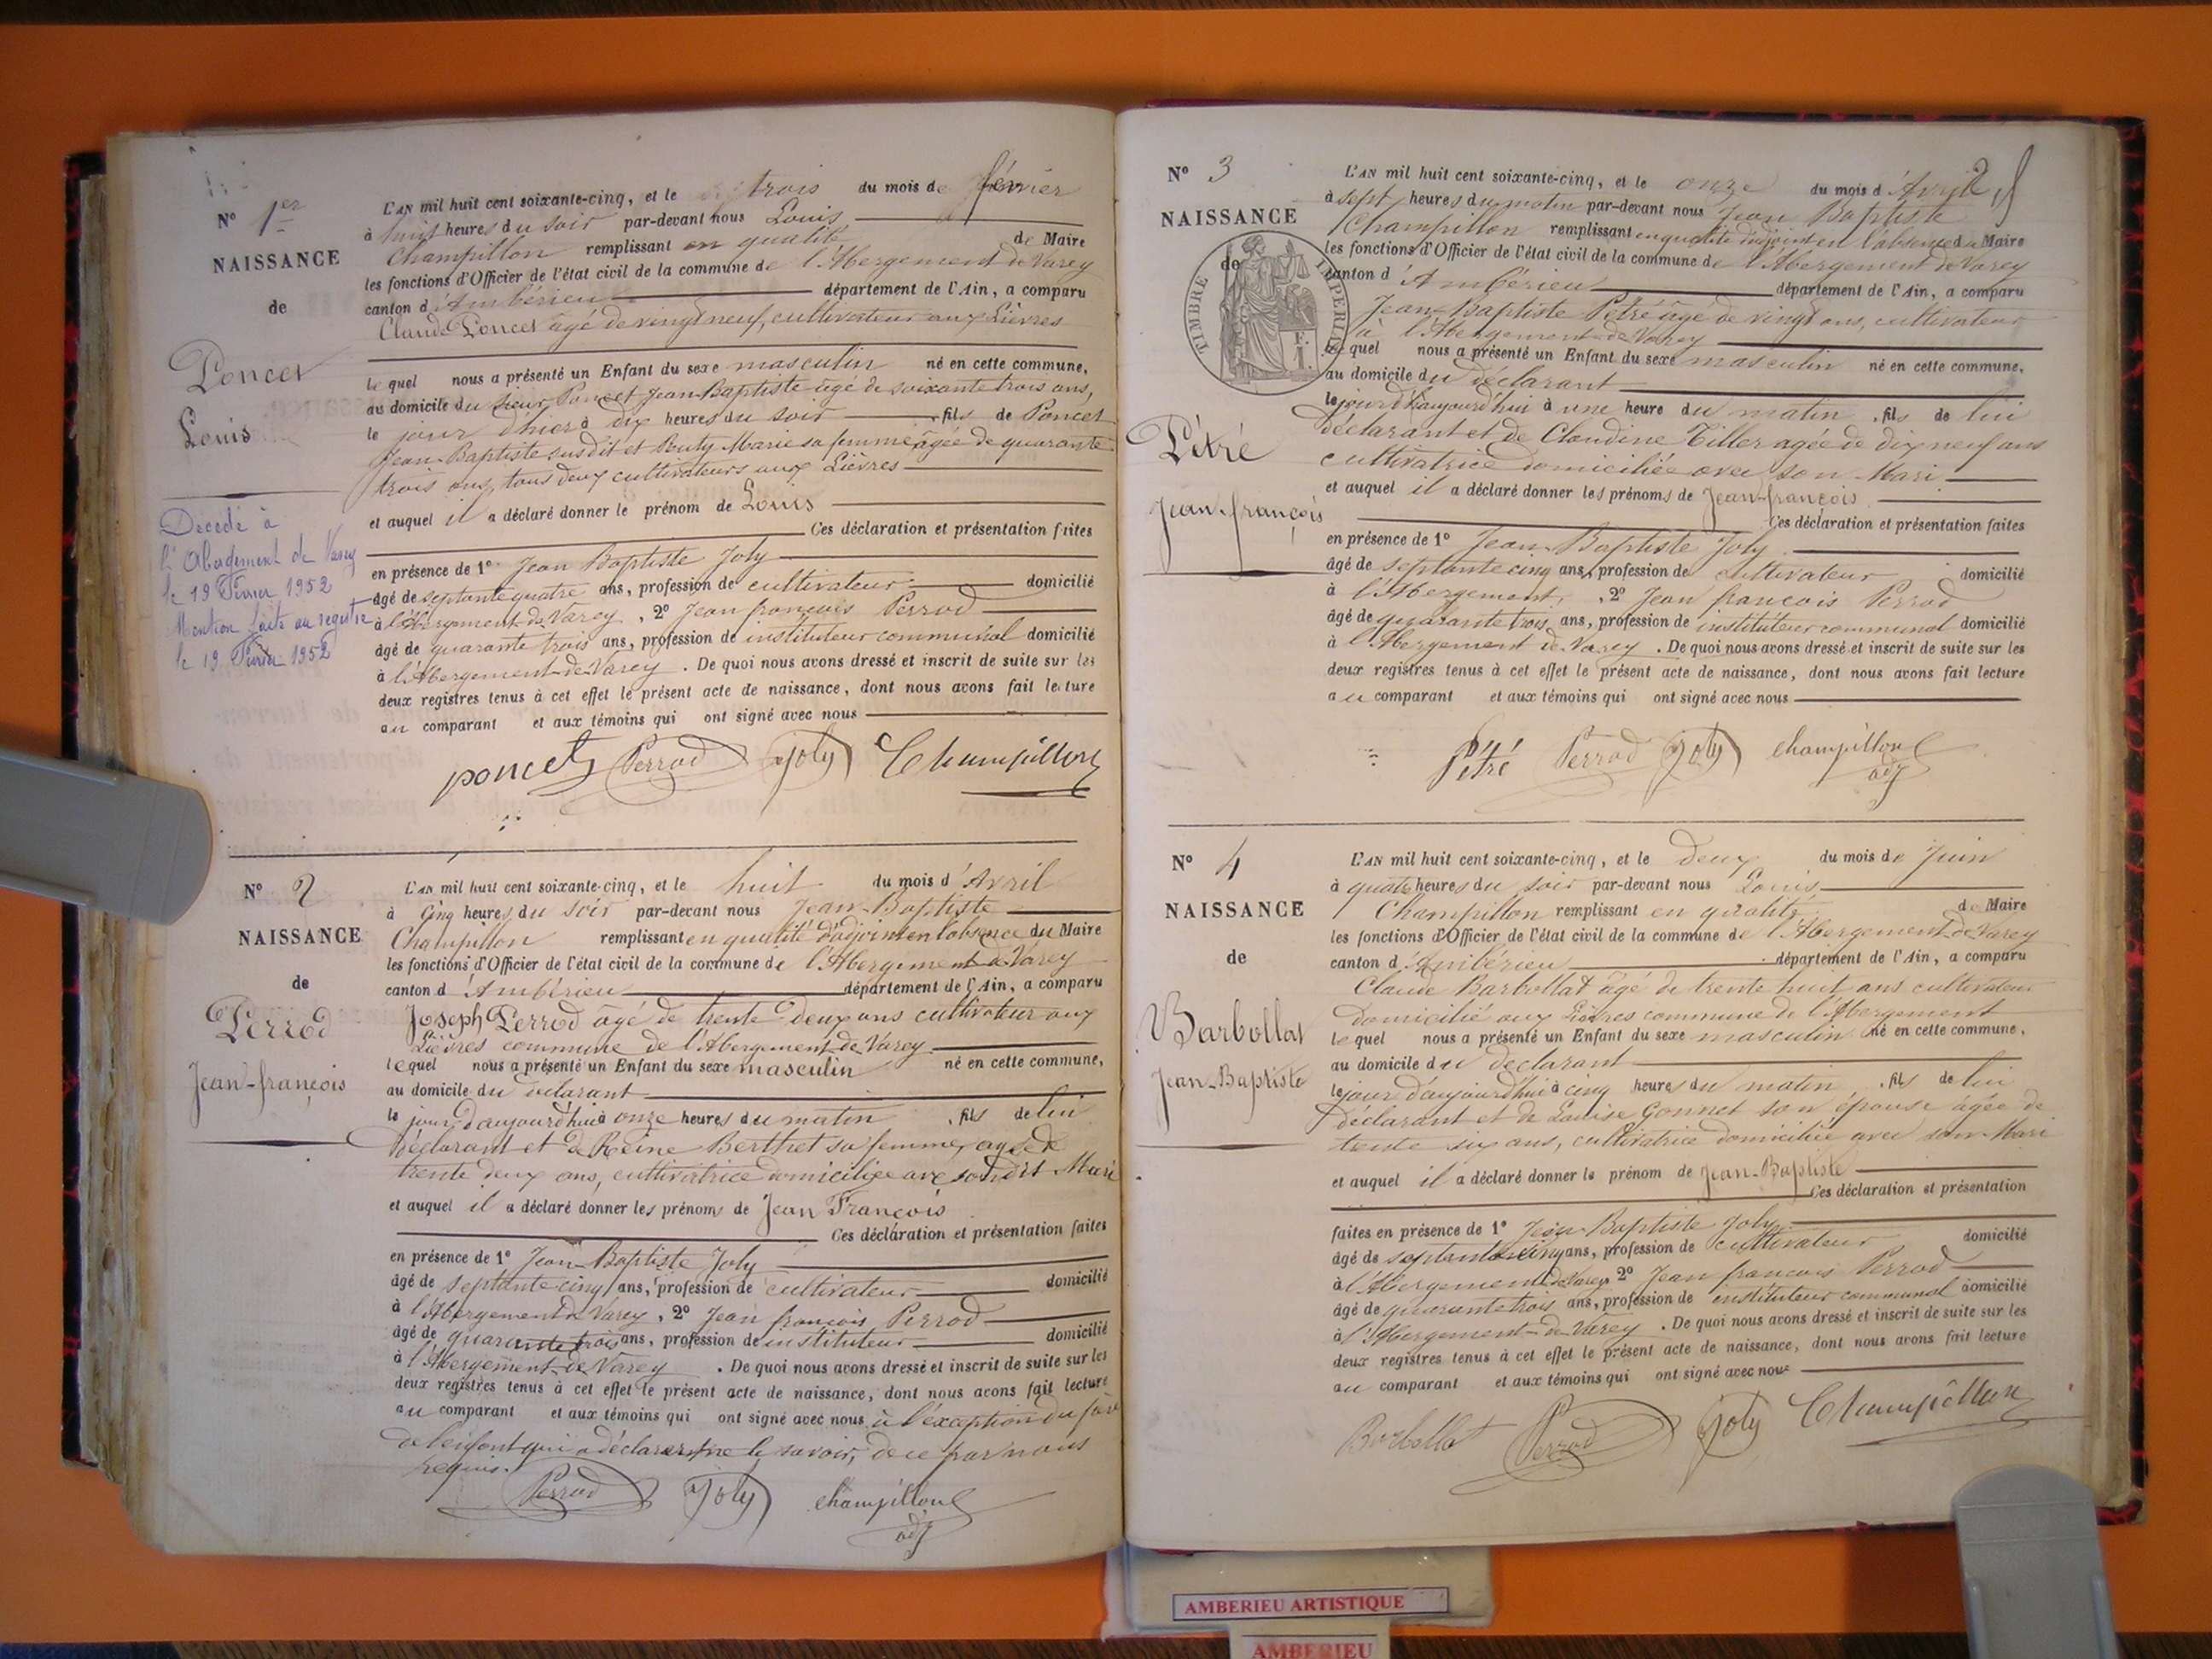 N° 1er
NAISSANCE
de
Poncet
Louis
Décédé à
l'Abergement de Varey
le 19 Février 1952
Mention faite au registre
le 19 Février 1952
L'AN mil huit cent soixante-cinq, et le trois du mois de février
à huit heures du soir par-devant nous Louis
Champillon remplissant en qualité de Maire
les fonctions d'Officier de l'état civil de la commune de l'Abergement de Varey
canton d'Ambérieu département de l'Ain, a comparu
Claude Poncet âgé de vingt neuf, cultivateur aux Lièvres
lequel nous a présenté un Enfant du sexe masculin né en cette commune,
au domicile du sieur Poncet Jean-Baptiste âgé de soixante trois ans,
le jour d'hier à dix heures du soir fils de Poncet
Jean-Baptiste susdit et Bouty Marie sa femme âgée de quarante
trois ans, tous deux cultivateurs aux Lièvres
et auquel il a déclaré donner le prénom de Louis
Ces déclaration et présentation faites
en présence de 1° Jean Baptiste Joly
âgé de septante quatre ans, profession de cultivateur domicilié
à l'Abergement de Varey, 2° Jean françois Perrod
âgé de quarante trois ans, profession de instituteur communal domicilié
à l'Abergement-de-Varey. De quoi nous avons dressé et inscrit de suite sur les
deux registres tenus à cet effet le présent acte de naissance, dont nous avons fait lecture
au comparant et aux témoins qui ont signé avec nous
poncet Perrod Joly Champillon
N° 2
NAISSANCE
de
Perrod
Jean-françois
L'AN mil huit cent soixante-cinq, et le huit du mois d'Avril
à Cinq heures du soir par-devant nous Jean-Baptiste
Champillon remplissant en qualité d'adjoint en l'absence du Maire
les fonctions d'Officier de l'état civil de la commune de l'Abergement de Varey
canton d'Ambérieu département de l'Ain, a comparu
Joseph Perrod âgé de trente deux ans cultivateur aux
Lièvres commune de l'Abergement de Varey
lequel nous a présenté un Enfant du sexe masculin né en cette commune,
au domicile du déclarant
le jour d'aujourd'hui à onze heures du matin, fils de lui
déclarant et de Reine Berthet sa femme, agée de
trente deux ans, cultivatrice domiciliée avec son dit Mari
et auquel il a déclaré donner les prénoms de Jean François
Ces déclaration et présentation faites
en présence de 1° Jean-Baptiste Joly
âgé de septante cinq ans, profession de cultivateur domicilié
à l'Abergement de Varey, 2° Jean françois Perrod
âgé de quarante trois ans, profession de instituteur domicilié
à l'Abergement-de-Varey. De quoi nous avons dressé et inscrit de suite sur les
deux registres tenus à cet effet le présent acte de naissance, dont nous avons fait lecture
au comparant et aux témoins qui ont signé avec nous à l'exception du père
de l'enfant qui a déclaré ne le savoir, de ce par nous
requis.
Perrod Joly champillon
adj
N° 3
NAISSANCE
de
TIMBRE IMPERIAL
Pétré
Jean-françois
L'AN mil huit cent soixante-cinq, et le onze du mois d'Avril
à sept heures du matin par-devant nous Jean Baptiste
Champillon remplissant en qualité d'adjoint en l'absence du Maire
les fonctions d'Officier de l'état civil de la commune de l'Abergement de Varey
canton d'Ambérieu département de l'Ain, a comparu
Jean-Baptiste Pétré âgé de vingt ans, cultivateur
à l'Abergement-de-Varey
lequel nous a présenté un Enfant du sexe masculin né en cette commune,
au domicile du déclarant
le jour d'aujourd'hui à une heure du matin, fils de lui
déclarant et de Claudine Tiller agée de dix neuf ans
cultivatrice domiciliée avec son Mari
et auquel il a déclaré donner les prénoms de Jean-françois
Ces déclaration et présentation faites
en présence de 1° Jean-Baptiste Joly
âgé de septante cinq ans, profession de cultivateur domicilié
à l'Abergement, 2° Jean françois Perrod
âgé de quarante trois ans, profession de instituteur communal domicilié
à l'Abergement de Varey. De quoi nous avons dressé et inscrit de suite sur les
deux registres tenus à cet effet le présent acte de naissance, dont nous avons fait lecture
au comparant et aux témoins qui ont signé avec nous
Pétré Perrod Joly champillon
adj
N° 4
NAISSANCE
de
Barbollat
Jean-Baptiste
L'AN mil huit cent soixante-cinq, et le deux du mois de Juin
à quatre heures du soir par-devant nous Louis
Champillon remplissant en qualité de Maire
les fonctions d'Officier de l'état civil de la commune de l'Abergement-de-Varey
canton d'Ambérieu département de l'Ain, a comparu
Claude Barbollat âgé de trente huit ans cultivateur
domicilié aux Lièvres commune de l'Abergement
lequel nous a présenté un Enfant du sexe masculin né en cette commune,
au domicile du déclarant
le jour d'aujourd'hui à cinq heures du matin, fils de lui
déclarant et de Louise Gonnet son épouse âgée de
trente six ans, cultivatrice domiciliée avec son Mari
et auquel il a déclaré donner le prénom de Jean-Baptiste
Ces déclaration et présentation
faites en présence de 1° Jean-Baptiste Joly
âgé de septante cinq ans, profession de cultivateur domicilié
à l'Abergement de Varey 2° Jean françois Perrod
âgé de quarante trois ans, profession de instituteur communal domicilié
à l'Abergement-de-Varey. De quoi nous avons dressé et inscrit de suite sur les
deux registres tenus à cet effet le présent acte de naissance, dont nous avons fait lecture
au comparant et aux témoins qui ont signé avec nous
Barbollat Perrod Joly Champillon
AMBERIEU ARTISTIQUE
AMBERIEU